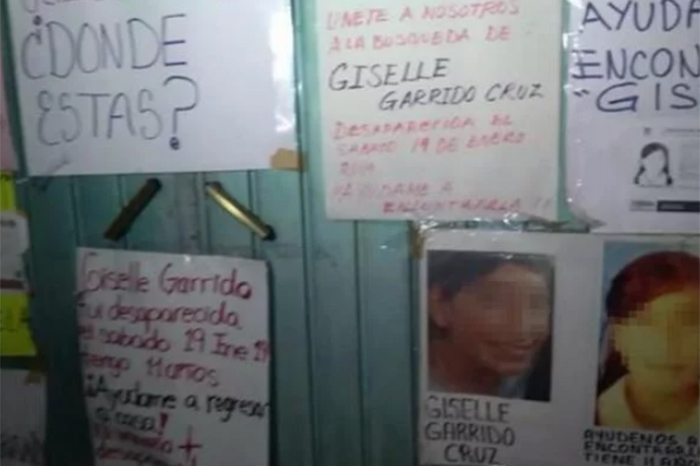 ¿DONDE
ESTAS?
UNETE A NOSOTROS
A LA BUSQUEDA DE
GISELLE
GARRIDO CRUZ
DESAPARECIDA EL
SABADO 19 DE ENERO
AYUDAME A
ENCONTRARLA !!
AYUDA
ENCON
"GIS
Giselle Garrido
fui desaparecida
el sabado 19 Ene
tengo 11 años
¡Ayudame a regresar
a casa!
GISELLE
GARRIDO
CRUZ
AYUDENOS A
ENCONTRARLA
TIENE 11 AÑOS